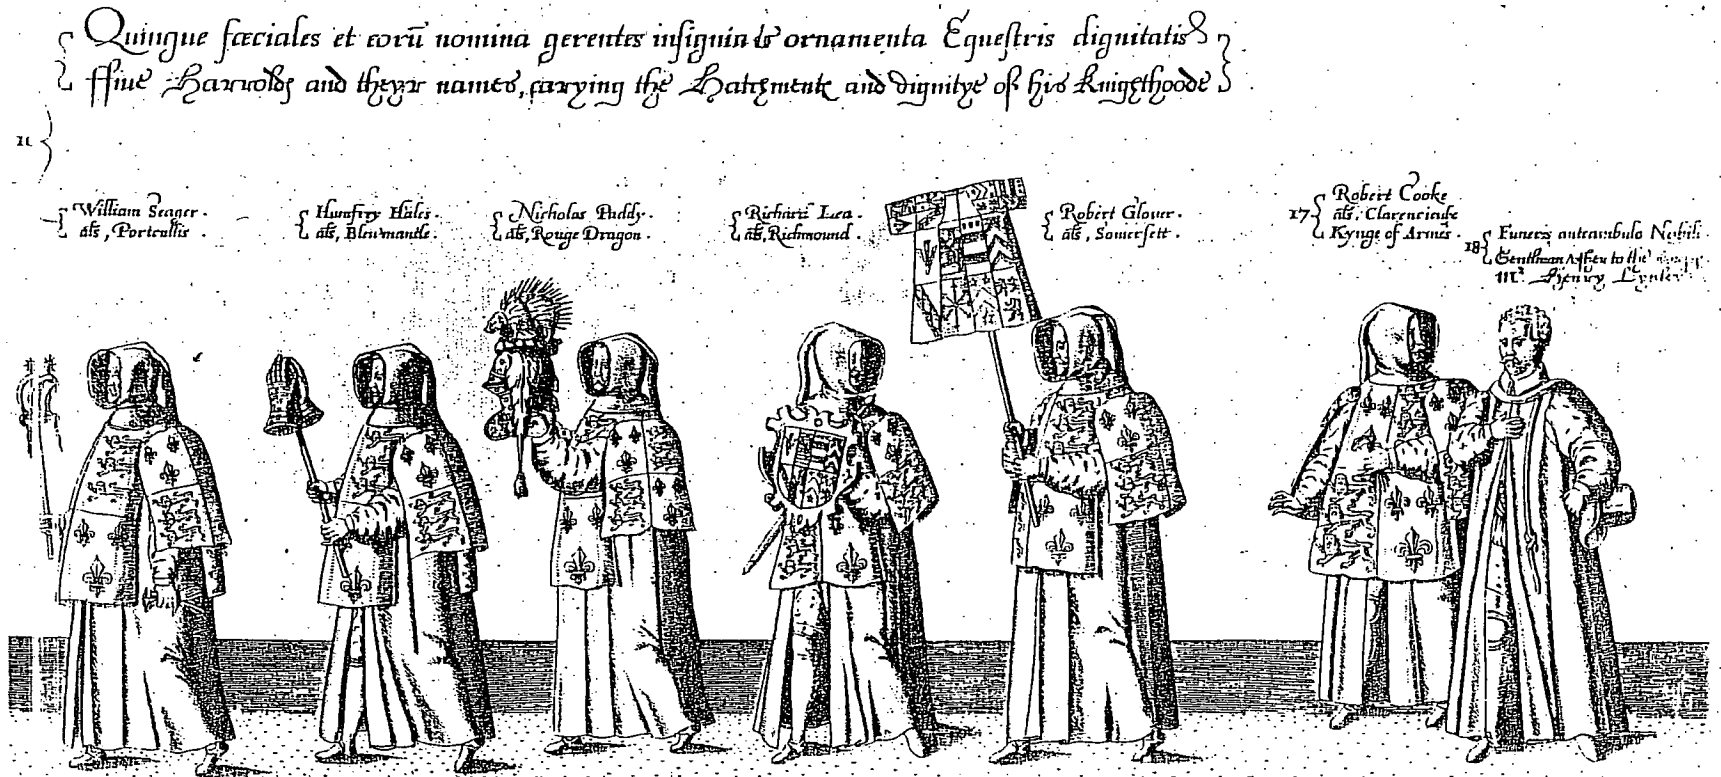 Quinque fœciales et eorū nomina gerentes insignia & ornamenta Equestris dignitatis
ffiue Harrolds and theyr names, carying the Hatchments and dignitye of his Knighthoode
William Seager.
als, Portcullis.
Humfrey Hales.
als, Blewmantle.
Nicholas Paddy.
als, Rouge Dragon.
Richard Lea.
als, Richmound.
Robert Glouer.
als, Somersett.
17
Robert Cooke
als, Clarencieulx
Kynge of Armes.
18
Funeris anteambulo Nobili
Gentlman Vsher to the
Mr. Henry